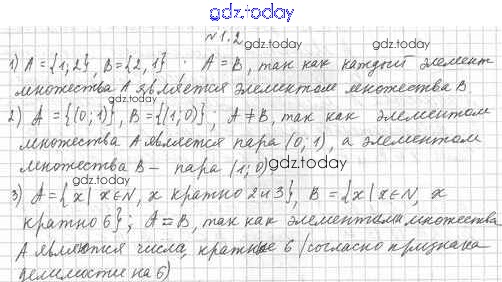 gdz.today
№1.2
gdz.today gdz.today
1) A = {1; 2}, B = {2, 1}; A = B, так как каждый элемент
множества A является элементом множества B.
gdz.today
2) A = {(0; 1)}, B = {(1; 0)}; A ≠ B, так как элементом
множества A является пара (0; 1), а элементом
множества B – пара (1; 0)
gdz.today gdz.today
3) A = {x | x ∈ N, x кратно 2 и 3}, B = {x | x ∈ N, x
кратно 6}; A = B, так как элементами множества
gdz.today
A являются числа, кратные 6 (согласно признака
gdz.today
делимости на 6)